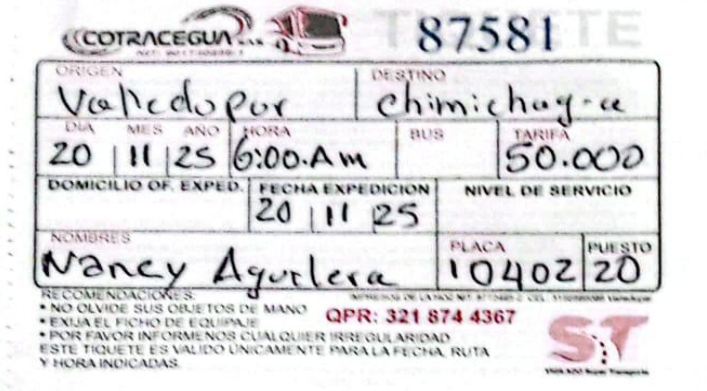 COTRACEGUA S.A.S
TIQUETE
87581
ORIGEN
Valledupar
DESTINO
Chimichagua
DIA MES AÑO
20 11 25
HORA
6:00.Am
BUS
TARIFA
50.000
DOMICILIO OF. EXPED.
FECHA EXPEDICION
20 11 25
NIVEL DE SERVICIO
NOMBRES
Nancy Aguilera
PLACA
10402
PUESTO
20
RECOMENDACIONES:
• NO OLVIDE SUS OBJETOS DE MANO
• EXIJA EL FICHO DE EQUIPAJE
• POR FAVOR INFORMENOS CUALQUIER IRREGULARIDAD
ESTE TIQUETE ES VALIDO ÚNICAMENTE PARA LA FECHA, RUTA
Y HORA INDICADAS.
QPR: 321 874 4367
ST